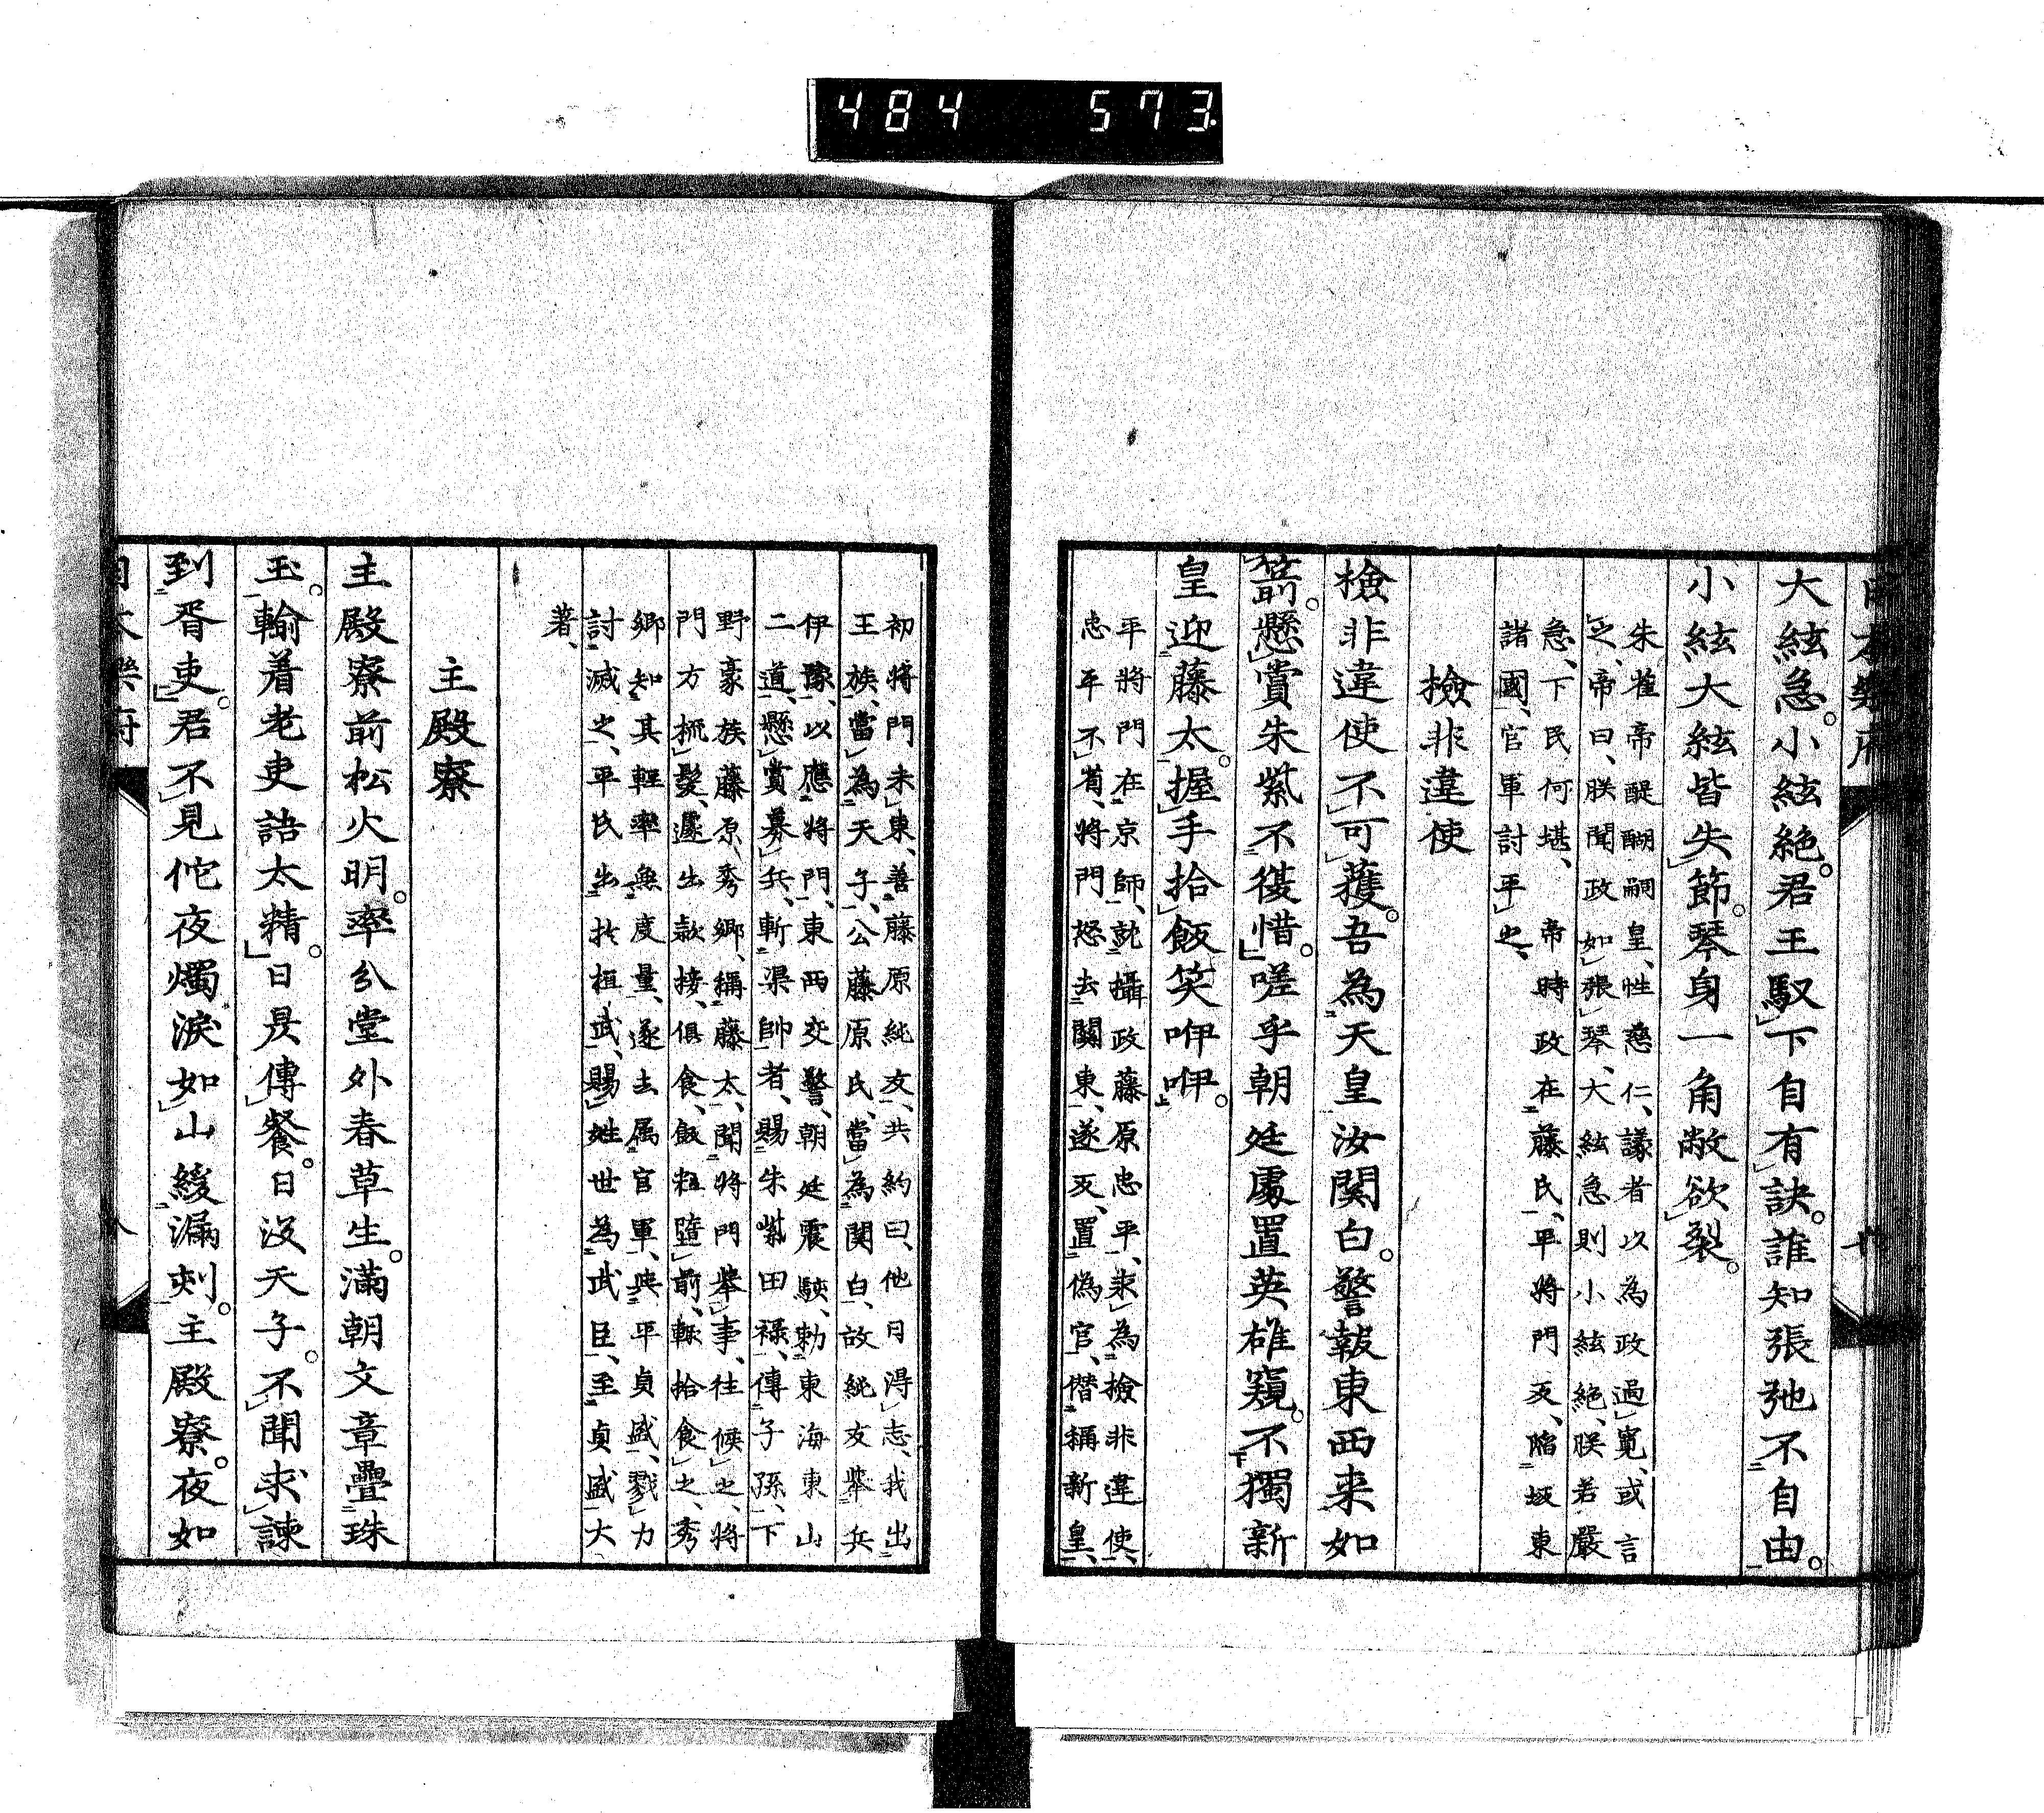 484 573
日本樂府
大絃急。小絃絶。君王馭下自有訣。誰知張弛不自由。
小絃大絃皆失節。琴身一角敝欲裂。
朱雀帝醍醐嗣皇、性慈仁、議者以為政過寬、或言
之、帝曰、朕聞政如張琴、大絃急則小絃絶、朕若嚴
急、下民何堪、帝時政在藤氏、平將門反、陷坂東
諸國、官軍討平之、
檢非違使
檢非違使不可獲。吾為天皇汝関白。警報東西来如
箭。懸賞朱紫不復惜。嗟乎朝廷處置英雄窺。不獨新
皇迎藤太。握手拾飯笑咿咿。
平將門在京師、就攝政藤原忠平、求為檢非違使、
忠平不省、將門怒去関東、遂反、置偽官、僭稱新皇、
初將門未東、善藤原純友、共約曰、他日得志、我出
王族、當為天子、公藤原氏、當為関白、故純友舉兵
伊豫、以應將門、東西交警、朝廷震駭、勅東海東山
二道、懸賞募兵、斬渠帥者、賜朱紫田祿、傳子孫、下
野豪族藤原秀鄉、稱藤太、聞將門舉事、往候之、將
門方梳髮、遽出款接、俱食、飯粒墮前、輒拾食之、秀
鄉知其輕率無度量、遂去属官軍、與平貞盛、戮力
討滅之、平氏出於桓武、賜姓世為武臣、至貞盛大
著、
主殿寮
主殿寮前松火明。率分堂外春草生。滿朝文章疊珠
玉。輸着老吏語太精。日昃傳餐。日沒天子。不聞求諫
到胥吏。君不見佗夜燭淚如山綾漏刺。主殿寮。夜如
日本樂府